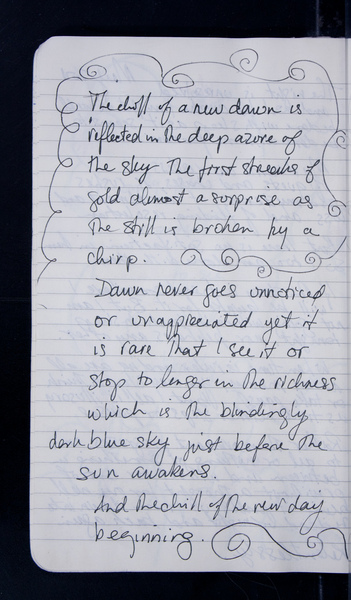 The chill of a new dawn is
reflected in the deep azure of
the sky The first streaks of
gold almost a surprise as
the still is broken by a
chirp.
Dawn never goes unnoticed
or unappreciated yet it
is rare that I see it or
stop to linger in the richness
which is the blindingly
dark blue sky just before the
sun awakens.
And the chill of the new day
beginning.